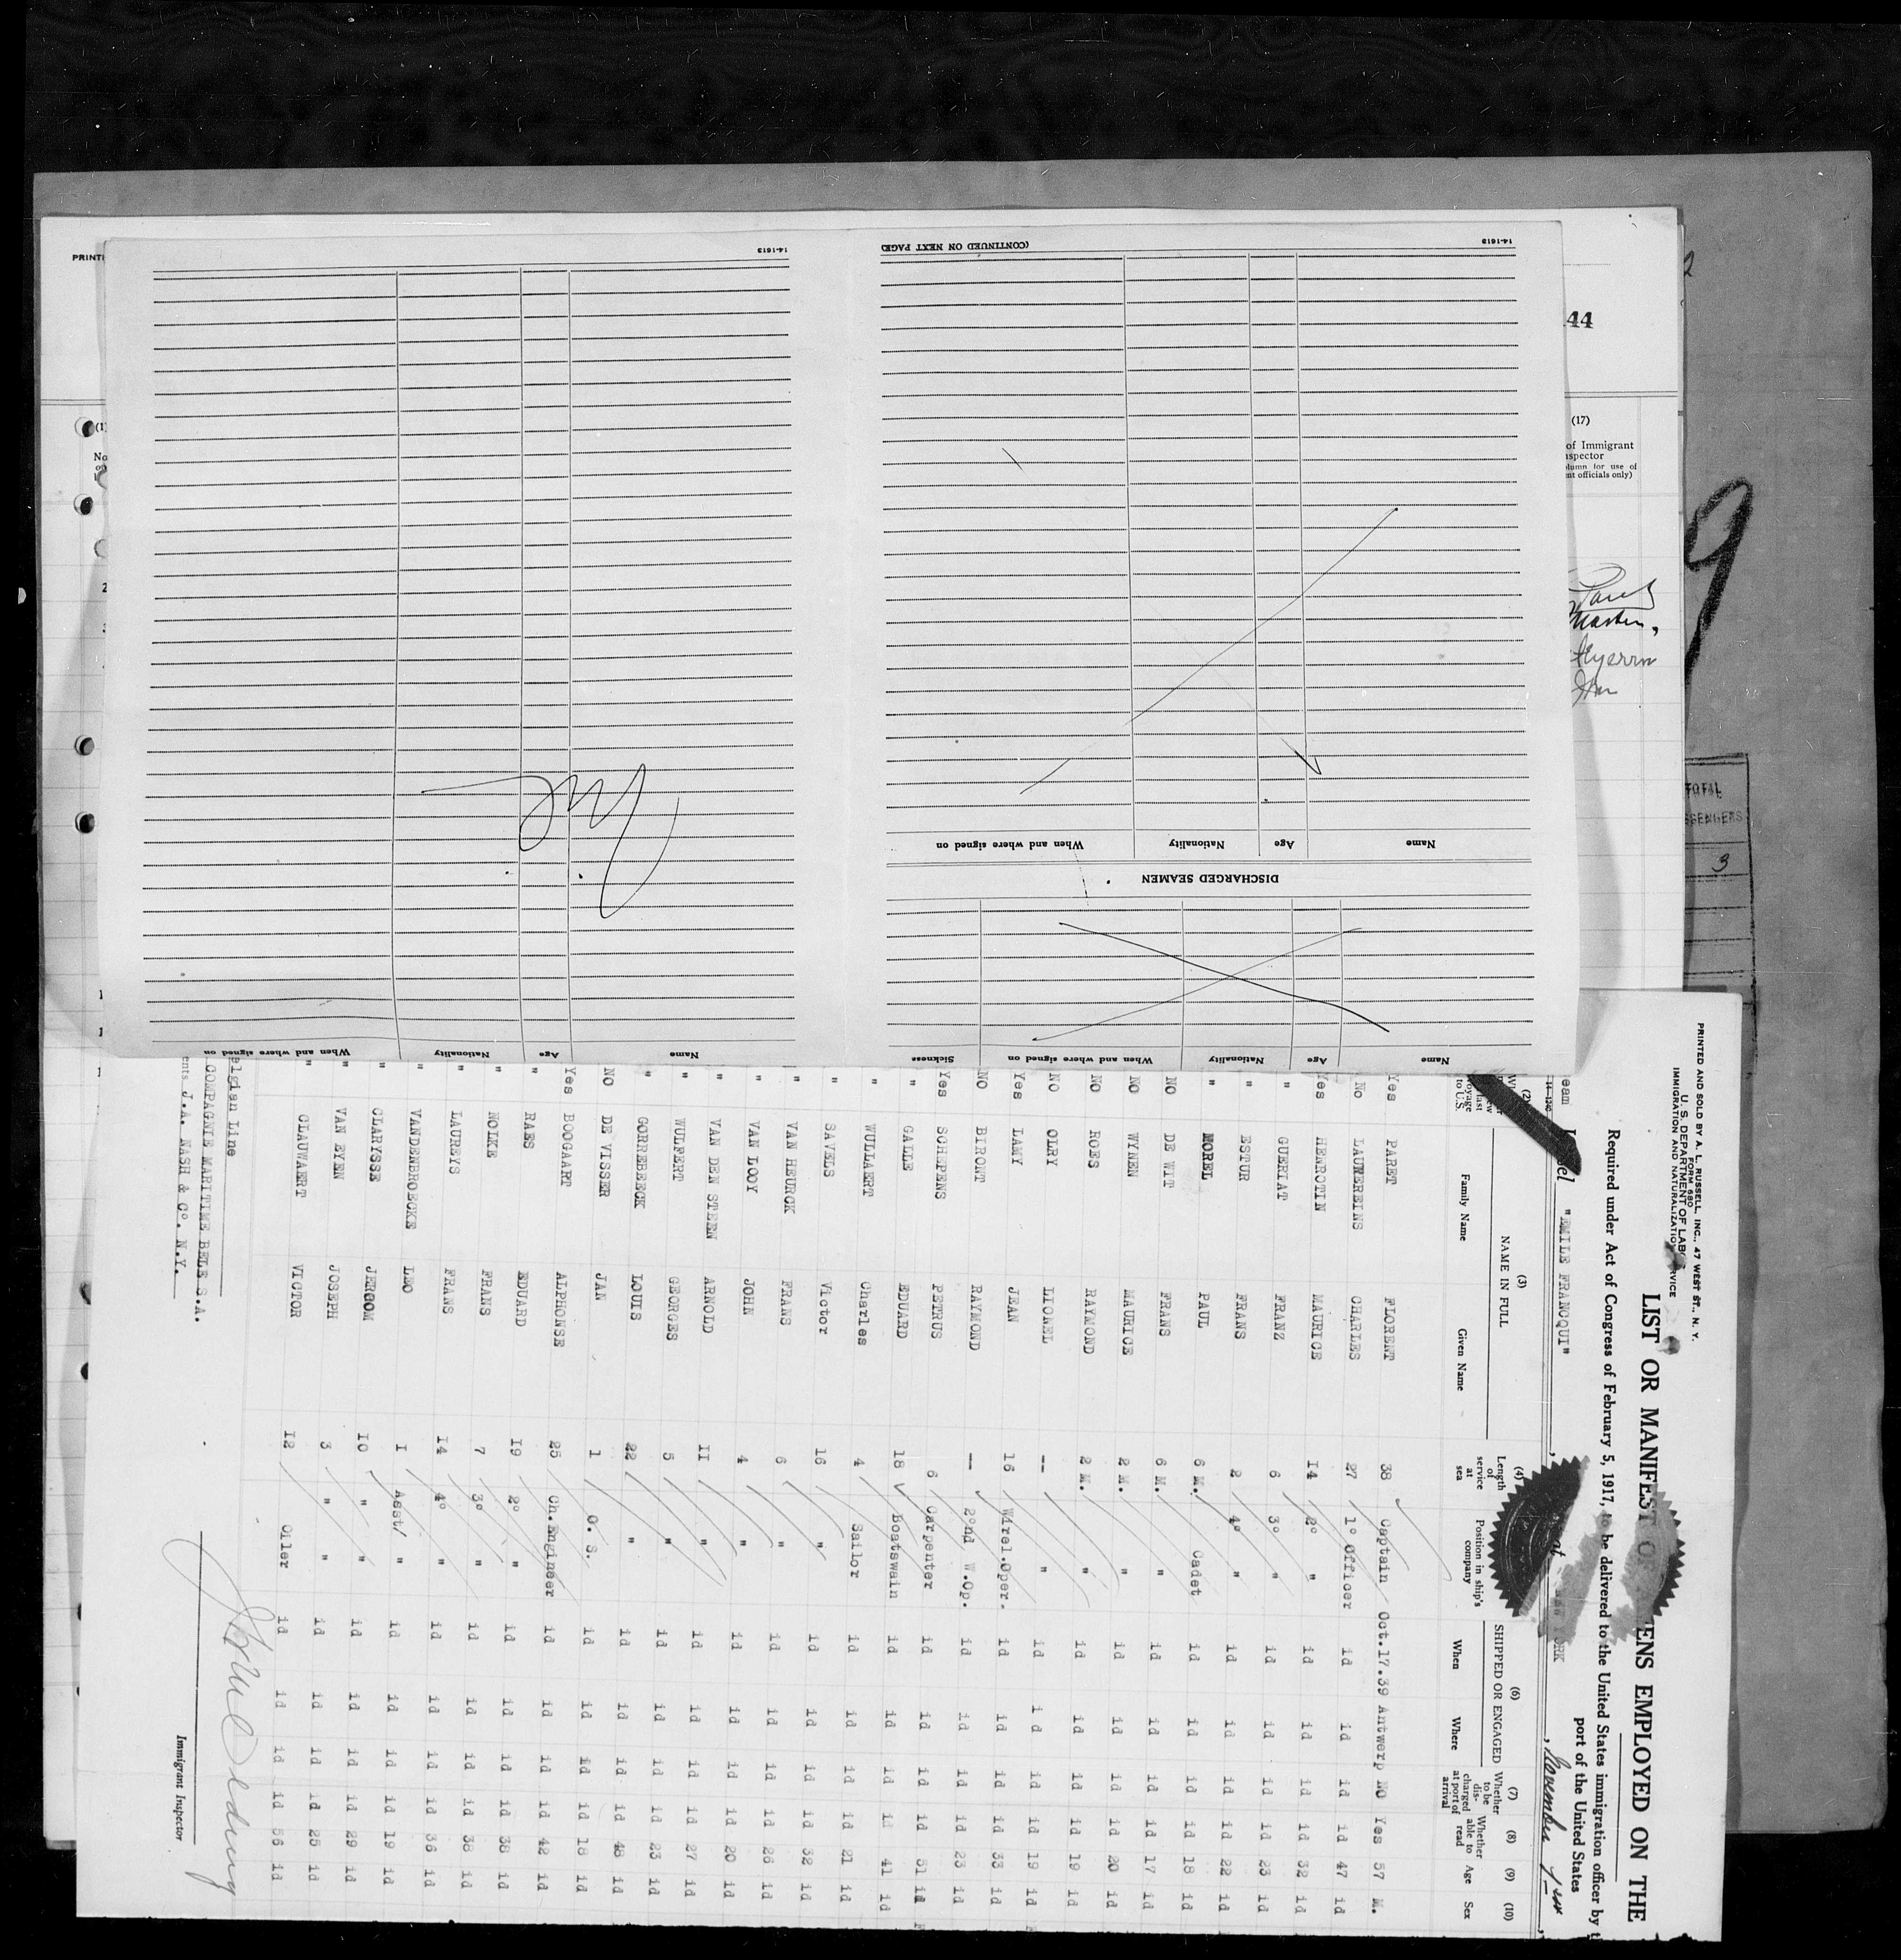 PRINTED AND SOLD BY A. L. RUSSELL, INC., 47 WEST ST., N. Y.
FORM 680
U. S. DEPARTMENT OF LABOR
IMMIGRATION AND NATURALIZATION SERVICE
LIST OR MANIFEST OF ENS EMPLOYED ON THE
Required under Act of Congress of February 5, 1917, to be delivered to the United States immigration officer by
port of the United States
"EMILE FRANQUI"
YORK
, November
(2) (3) (4) (6) (7) (8) (9) (10)
NAME IN FULL
Family Name Given Name
Length of service at sea
Position in ship's company
SHIPPED OR ENGAGED
When Where
Whether to be discharged at port of arrival
Whether able to read
Age Sex
Yes PARET FLORENT 38 Captain Oct.17.39 Antwerp NO Yes 57 M.
No LAUREREINS CHARLES 27 1° Officer id id id id 47 id
Yes HENROTIN MAURICE I4 2° " id id id id 32 id
" GUERIAT FRANZ 6 3° " id id id id 23 id
" ESTUR FRANS 2 4° " id id id id 22 id
" MOREL PAUL 6 M. Cadet id id id id 18 id
NO DE WIT FRANS 6 M. " id id id id 17 id
NO WYNEN MAURICE 2 M. " id id id id 20 id
NO ROES RAYMOND 2 M. " id id id id 19 id
NO OLRY LIONEL -- " id i d id id 19 id
Yes LAMY JEAN 16 Wirel.Oper. id id id id 33 id
NO BIRONT RAYMOND -- 2°nd W.Op. id id id id 23 id
Yes SCHEPENS PETRUS 6 Carpenter id id id id 51 id
" GALLE EDUARD 18 Boatswain id id id id 41 id
" WULLAERT Charles 4 Sailor id id id id 21 id
" SAVELS Victor 16 " id id id id 32 id
" VAN HEURCK FRANS 6 " id id id id 26 id
" VAN LOOY JOHN 4 " id id id id 20 id
" VAN DEN STEEN ARNOLD II " id id id id 27 id
" WULFERT GEORGES 5 " id id id id 23 id
" GORREBEECK LOUIS 22 " id id id id 48 id
NO DE VISSER JAN 1 O. S. id id id id 18 id
Yes BOOGAART ALPHONSE 25 Ch.Engineer id id id id 42 id
" RAES EDUARD I9 2° " id id id id 38 id
" NOLKE FRANS 7 3° " id id id id 38 id
" LAUREYS FRANS I4 4° " id id id id 36 id
" VANDENBROECKE LEO I Asst/ " id id id id 19 id
" CLARYSSE JEROOM IO " id id id id 29 id
" VAN EYEN JOSEPH 3 " id id id id 25 id
" CLAUWAERT VICTOR I2 Oiler id id id id 56 id
elgian Line
COMPAGNIE MARITIME BELE S.A.
ents J.A. NASH & C°. N.Y.
Immigrant Inspector
Name Age Nationality When and where signed on Sickness
DISCHARGED SEAMEN
Name Age Nationality When and where signed on
(CONTINUED ON NEXT PAGE)
14-1613
Name Age Nationality When and where signed on
14-1613
PRINT
44
(17)
of Immigrant
spector
umn for use of
nt officials only)
Master,
9
TOTAL
SSENGERS
3
(1)
No